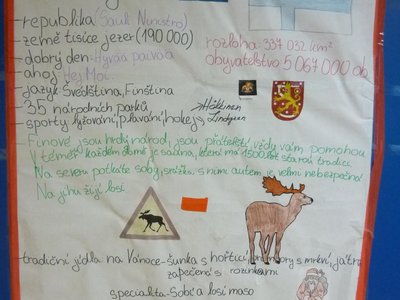 -republika (Sauli Niinistro)
-země tisíce jezer (190 000)
rozloha: 337 032 km²
-dobrý den-Hyvää päivää
obyvatelstvo 5 067 000 ob.
-ahoj Hej Moi.
-jazyk Švédština, Finština
-35 národních parků
-sporty lyžování, plavání, hokej
Häkkinen
Lindgren
-Finové jsou hrdý národ, jsou přátelští, vždy vám pomohou
V téměř každém domě je sauna, která má 1500 let starou tradici
Na severu potkáte soby, srážka s ním autem je velmi nebezpečná
Na jihu žijí losi
-tradiční jídla na Vánoce-šunka s hořticí, brambory s mrkví, játra
zapečená s rozinkami
specialita-Sobí a losí maso